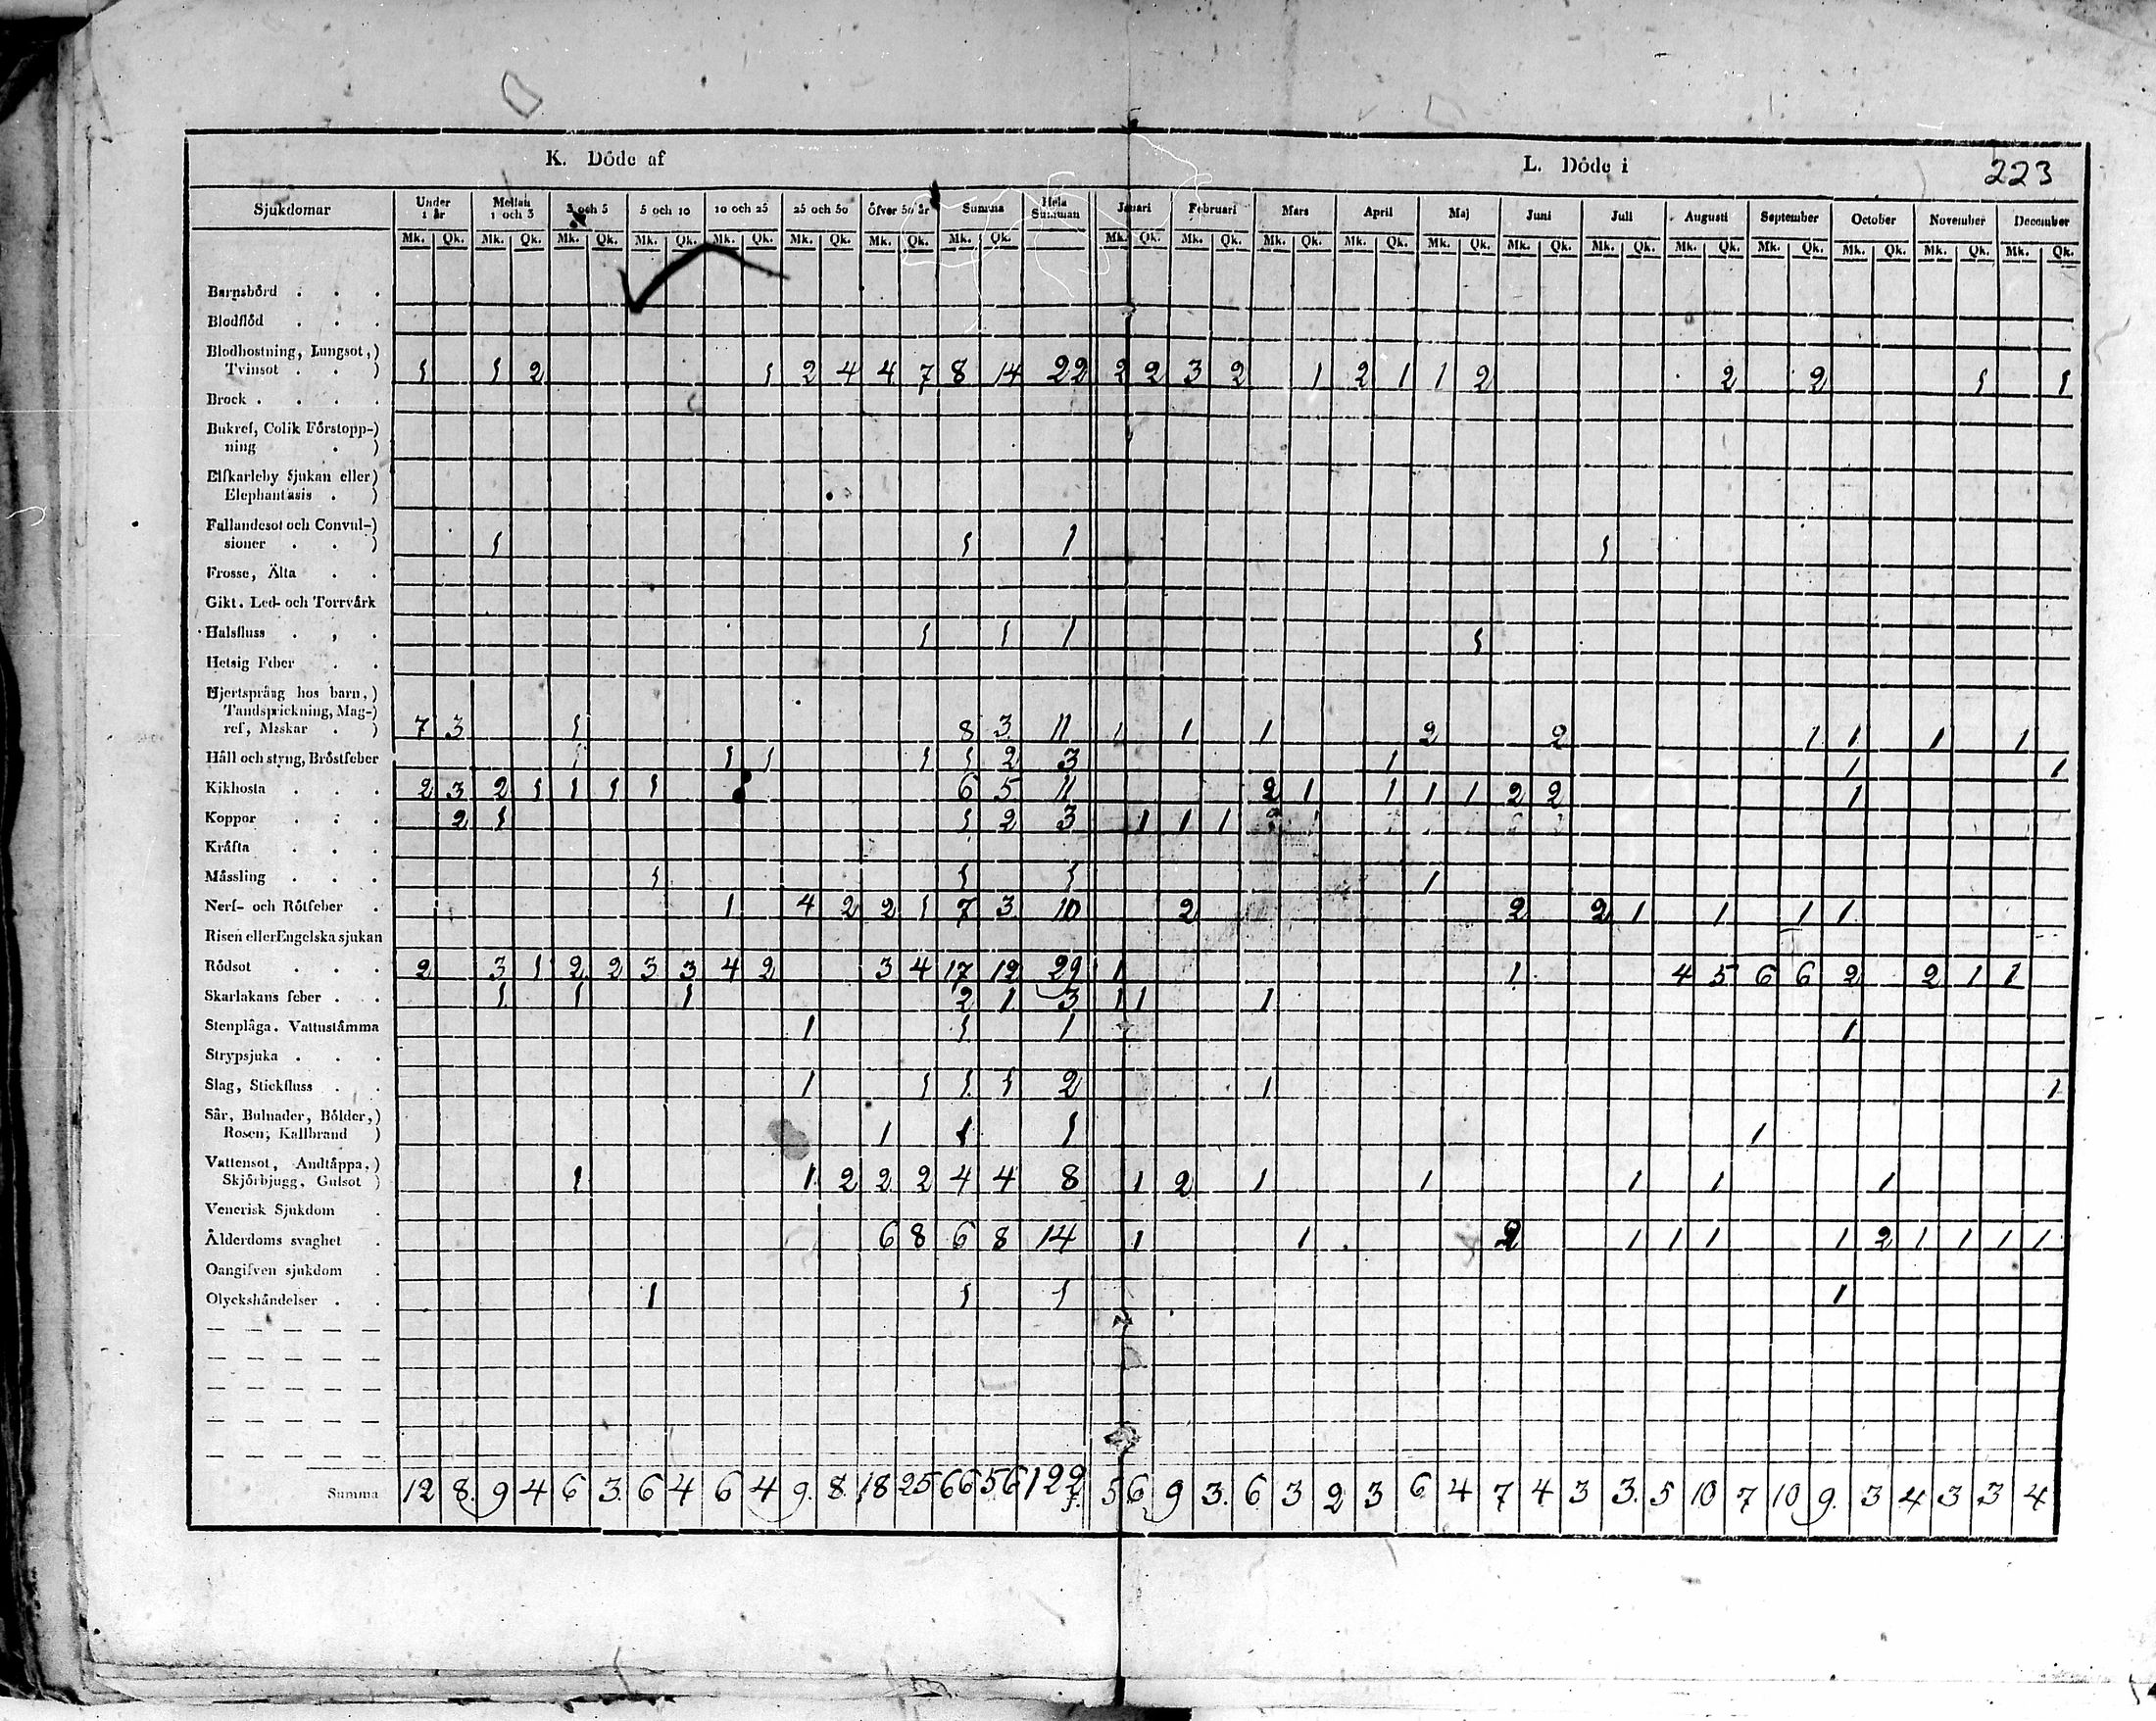 K. Döde af L. Döde i 223
Sjukdomar Under 1 år Mellan 1 och 3 3 och 5 5 och 10 10 och 25 25 och 50 öfver 50 år Summa Hela Summan Januari Februari Mars April Maj Juni Juli Augusti September October November December
Mk. Qk. Mk. Qk. Mk. Qk. Mk. Qk. Mk. Qk. Mk. Qk. Mk. Qk. Mk. Qk. Mk. Qk. Mk. Qk. Mk. Qk. Mk. Qk. Mk. Qk. Mk. Qk. Mk. Qk. Mk. Qk. Mk. Qk. Mk. Qk. Mk. Qk. Mk. Qk.
Barnsbörd . . .
Blodflöd . . .
Blodhostning, Lungsot,)
Tvinsot . . ) 1 1 2 1 2 4 4 7 8 14 22 2 2 3 2 1 2 1 1 2 2 2 1 1
Brock . . . .
Bukref, Colik Förstopp-)
ning . )
Elfkarleby Sjukan eller)
Elephantasis . )
Fallandesot och Convul-)
sioner . . ) 1 1 1 1
Frosse, Älta . .
Gikt. Led- och Torrvärk
Halsfluss . , . 1 1 1 1
Hetsig Feber . .
Hjertsprång hos barn,)
Tandsprickning, Mag-)
ref, Maskar . ) 7 3 1 8 3 11 1 1 1 2 2 1 1 1 1
Håll och styng, Bröstfeber 1 1 1 1 2 3 1 1 1
Kikhosta . . . 2 3 2 1 1 1 1 6 5 11 2 1 1 1 1 2 2 1
Koppor . . . 2 1 1 2 3 1 1 1
Kräfta . . .
Mässling . . . 1 1 1 1
Nerf- och Rötfeber . 1 4 2 2 1 7 3 10 2 2 2 1 1 1 1
Risen eller Engelska sjukan
Rödsot . . . 2 3 1 2 2 3 3 4 2 3 4 17 12 29 1 1 4 5 6 6 2 2 1 1
Skarlakans feber . . 1 1 1 2 1 3 1 1 1
Stenplåga. Vattustämma 1 1 1 1
Strypsjuka . . .
Slag, Stickfluss . . 1 1 1 1 2 1 1
Sår, Bulnader, Bölder,)
Rosen, Kallbrand ) 1 1 1 1
Vattensot, Andtäppa,)
Skjörbjugg, Gulsot ) 1 1 2 2 2 4 4 8 1 2 1 1 1 1 1
Venerisk Sjukdom .
Ålderdoms svaghet . 6 8 6 8 14 1 1 2 1 1 1 1 2 1 1 1 1
Oangifven sjukdom .
Olyckshändelser . . 1 1 1 1
Summa 12 8 9 4 6 3 6 4 6 4 9 8 18 25 66 56 122 5 6 9 3 6 3 2 3 6 4 7 4 3 3 5 10 7 10 9 3 4 3 3 4